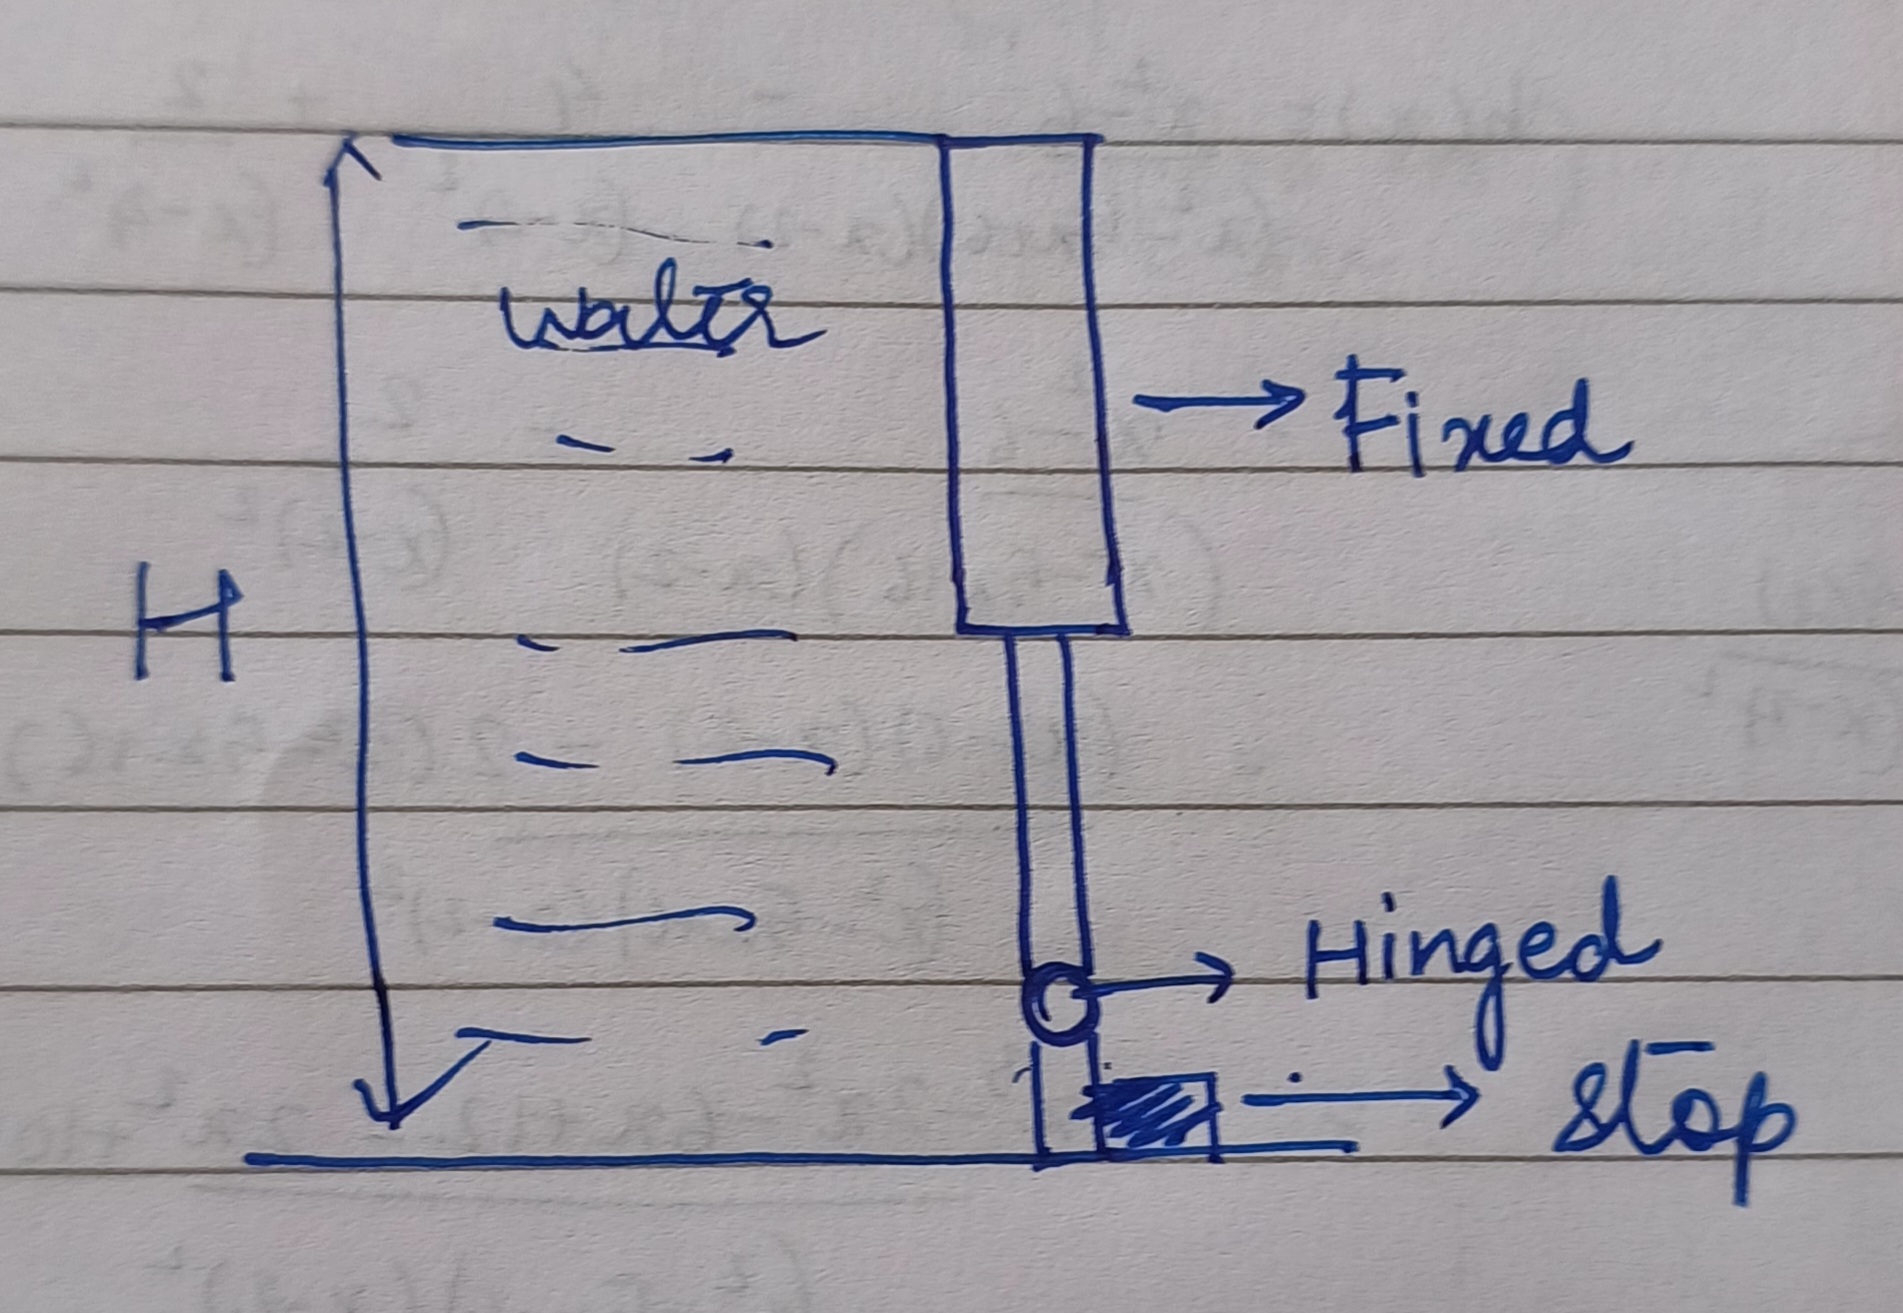 water
Fixed
H
Hinged
stop